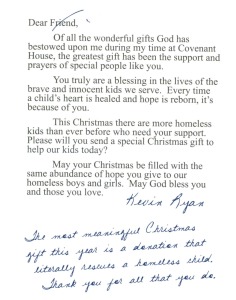 Dear Friend,
Of all the wonderful gifts God has
bestowed upon me during my time at Covenant
House, the greatest gift has been the support and
prayers of special people like you.
You truly are a blessing in the lives of the
brave and innocent kids we serve. Every time
a child's heart is healed and hope is reborn, it's
because of you.
This Christmas there are more homeless
kids than ever before who need your support.
Please will you send a special Christmas gift to
help our kids today?
May your Christmas be filled with the
same abundance of hope you give to our
homeless boys and girls. May God bless you
and those you love.
Kevin Ryan
The most meaningful Christmas
gift this year is a donation that
literally rescues a homeless child.
Thank you for all that you do.